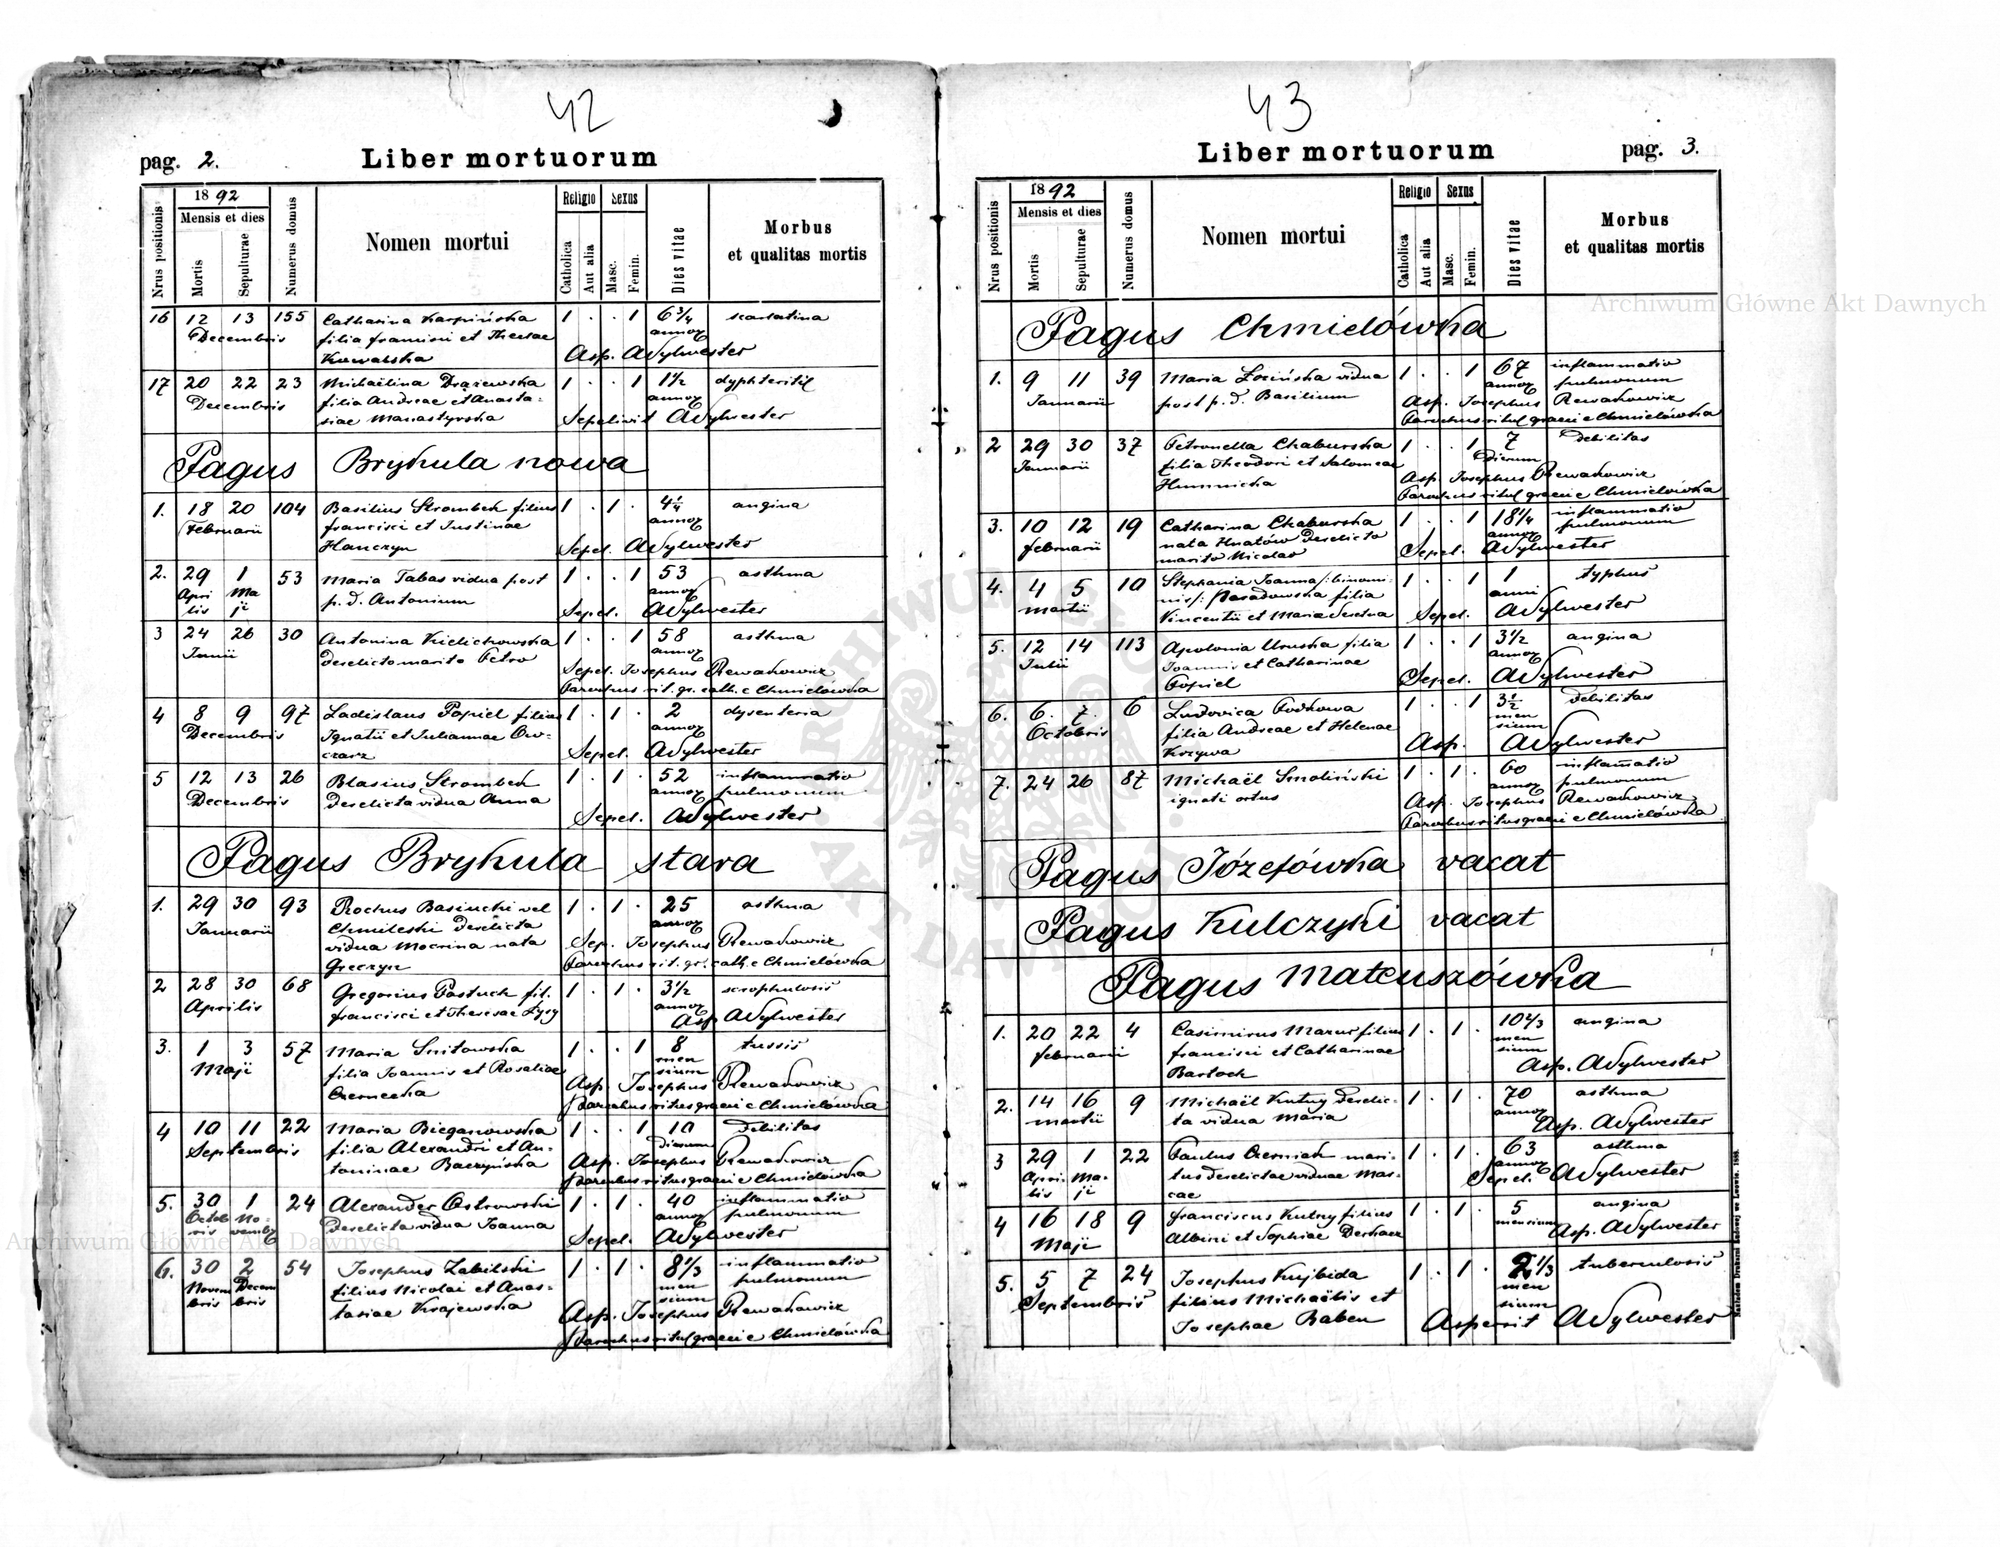 42
pag. 2.
Liber mortuorum
Nrus positionis
1892
Mensis et dies
Mortis
Sepulturae
Numerus domus
Nomen mortui
Religio
Catholica
Aut alia
Sexus
Masc.
Femin.
Dies vitae
Morbus
et qualitas mortis
16 12 13 155 Catharina Karpińska 1 . . 1 6 3/4 scarlatina
Decembris filia Francisci et Theresae
Kowalska Asp. ASylwester
17 20 22 23 Michaëlina Drązewska 1 . . 1 1 1/2 dyphteritis
Decembris filia Andreae et Anasta-
siae Manastyrska Sepelivit ASylwester
Pagus Brykula nowa
1. 18 20 104 Basilius Strombek filius 1 . 1 . 4 1/4 angina
Februarii Francisci et Justinae
Hanczyn Sepel. ASylwester
2. 29 1 53 Maria Tabas vidua post 1 . . 1 53 asthma
Apri Ma p. d. Antonium
lis ji Sepel. ASylwester
3 24 26 30 Antonina Kielichowska 1 . . 1 58 asthma
Junii derelicto marito Petro
Sepel. Josephus Rewakowicz
Parochus rit. gr. cath. e Chmielówka
4 8 9 97 Ladislaus Popiel filius 1 . 1 . 2 dysenteria
Decembris Ignatii et Juliannae Ow-
czarz Sepel. ASylwester
5 12 13 26 Blasius Strombek 1 . 1 . 52 inflammatio
Decembris derelicta vidua Anna pulmonum
Sepel. ASylwester
Pagus Brykula stara
1. 29 30 93 Rochus Basiucki vel 1 . 1 . 25 asthma
Januarii Chmileski derelicta
vidua Mocrina nata Sep. Josephus Rewakowicz
Greczyn Parochus rit. gr. cath. e Chmielówka
2 28 30 68 Gregorius Pastuch fil. 1 . 1 . 3 1/2 scrophulosis
Aprilis Francisci et Theresae Łysy Asp ASylwester
3. 1 3 57 Maria Snitowska 1 . . 1 8 tussis
Maji filia Joannis et Rosaliae mensium
Czernecka Asp. Josephus Rewakowicz
Parochus ritus graeci e Chmielówka
4 10 11 22 Maria Bieganowska 1 . . 1 10 debilitas
Septembris filia Alexandri et An- dierum
toninae Baczyńska Asp. Josephus Rewakowicz
Parochus ritus graeci e Chmielówka
5. 30 1 24 Alexander Ostrowski 1 . 1 . 40 inflammatio
Octob No- derelicta vidua Joanna pulmonum
ris vemb Sepel. ASylwester
6. 30 2 54 Josephus Zabilski 1 . 1 . 8 1/3 inflammatio
Novem Decem filius Nicolai et Anas- mensium pulmonum
bris bris tasiae Krajewska Asp. Josephus Rewakowicz
Parochus ritus graeci e Chmielówka
43
Liber mortuorum
pag. 3.
Nrus positionis
1892
Mensis et dies
Mortis
Sepulturae
Numerus domus
Nomen mortui
Religio
Catholica
Aut alia
Sexus
Masc.
Femin.
Dies vitae
Morbus
et qualitas mortis
Pagus Chmielówka
1. 9 11 39 Maria Łozińska vidua 1 . . 1 67 inflammatio
Januarii post p. d. Basilium pulmonum
Asp. Josephus Rewakowicz
Parochus ritus graeci e Chmielówka
2 29 30 37 Petronella Chaburska 1 . . 1 7 debilitas
Januarii filia Theodori et Salomeae dierum
Humnicka Asp. Josephus Rewakowicz
Parochus ritus graeci e Chmielówka
3. 10 12 19 Catharina Chaburska 1 . . 1 18 1/4 inflammatio
Februarii nata Hnatów derelicto pulmonum
marito Nicolao Sepel. ASylwester
4. 4 5 10 Stephania Joanna /: binomi- 1 . . 1 1 typhus
Martii nis :/ Posadowska filia anni
Vincentii et Maria Seretna Sepel. ASylwester
5. 12 14 113 Apolonia Uruska filia 1 . . 1 3 1/2 angina
Julii Joannis et Catharinae
Popiel Sepel. ASylwester
6. 6. 7. 6 Ludovica Podkowa 1 . . 1 3 1/2 debilitas
Octobris filia Andreae et Helenae mensium
Krzywa Asp. ASylwester
7. 24 26 87 Michaël Smoliński 1 . 1 . 60 inflammatio
ignoti ortus pulmonum
Asp. Josephus Rewakowicz
Parochus ritus graeci e Chmielówka
Pagus Józefówka vacat
Pagus Kulczyki vacat
Pagus Mateuszówka
1. 20 22 4 Casimirus Mazur filius 1 . 1 . 10 4/3 angina
Februarii Francisci et Catharinae mensium
Bartoch Asp. ASylwester
2. 14 16 9 Michaël Kutny derelic- 1 . 1 . 70 asthma
Martii ta vidua Maria Asp. ASylwester
3 29 1 22 Paulus Czerniak mari- 1 . 1 . 63 asthma
Apri- Ma- tus derelictae viduae Mar- Sepel. ASylwester
lis ji cae
4 16 18 9 Franciscus Kutny filius 1 . 1 . 5 angina
Maji Albini et Sophiae Derkacz mensium Asp. ASylwester
5. 5 7 24 Josephus Kujbida 1 . 1 . 2 1/3 tuberculosis
Septembris filius Michaëlis et mensium
Josephae Baben Aspersit ASylwester
Archiwum Główne Akt Dawnych
Archiwum Główne Akt Dawnych
ARCHIWUM GŁÓWNE AKT DAWNYCH